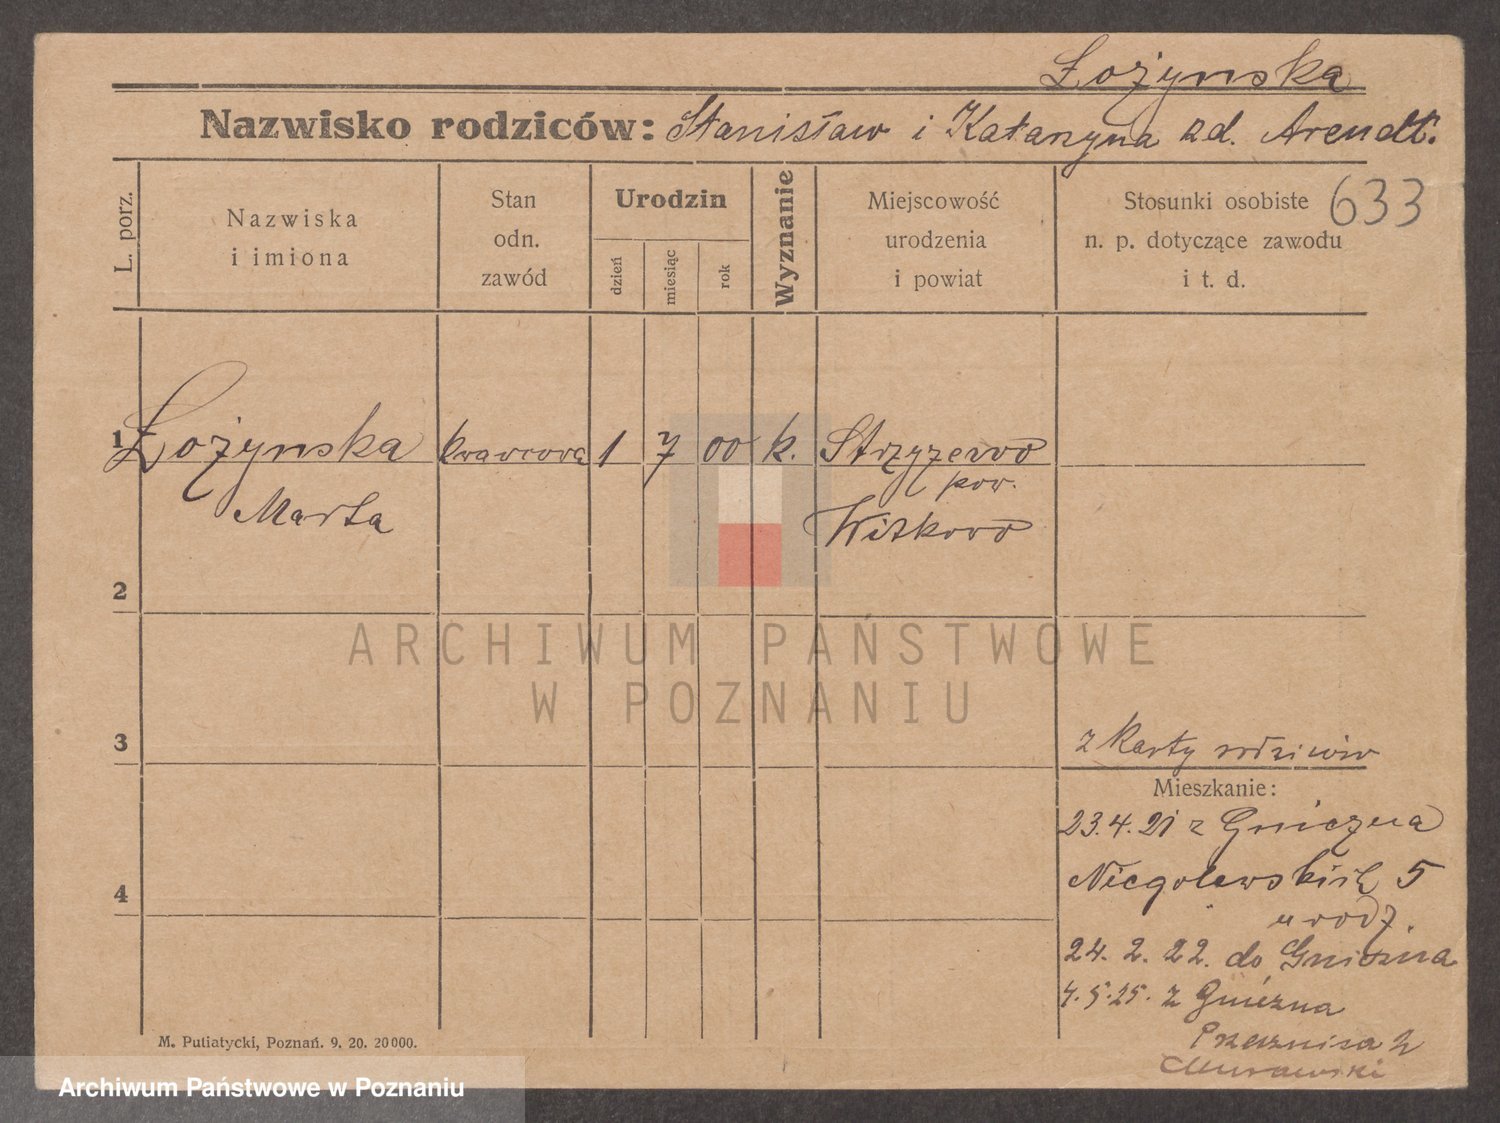 Łożynska
Nazwisko rodziców: Stanisław i Katarzyna zd. Arendt.
633
L. porz.
Nazwiska
i imiona
Stan
odn.
zawód
Urodzin
dzień
miesiąc
rok
Wyznanie
Miejscowość
urodzenia
i powiat
Stosunki osobiste
n. p. dotyczące zawodu
i t. d.
1 Łożynska krawcowa 1 7 00 k. Strzyzewo
pow.
Marta Witkowo
2
ARCHIWUM PAŃSTWOWE
W POZNANIU
3
z Karty rodziców
Mieszkanie:
23.4.21 z Gniezna
4
Niegolewskich 5
u rodz.
24. 2. 22. do Gniezna
4.5.25. z Gniezna
Przecznica 2
Murawski
M. Putiatycki, Poznań. 9. 20. 20000.
Archiwum Państwowe w Poznaniu